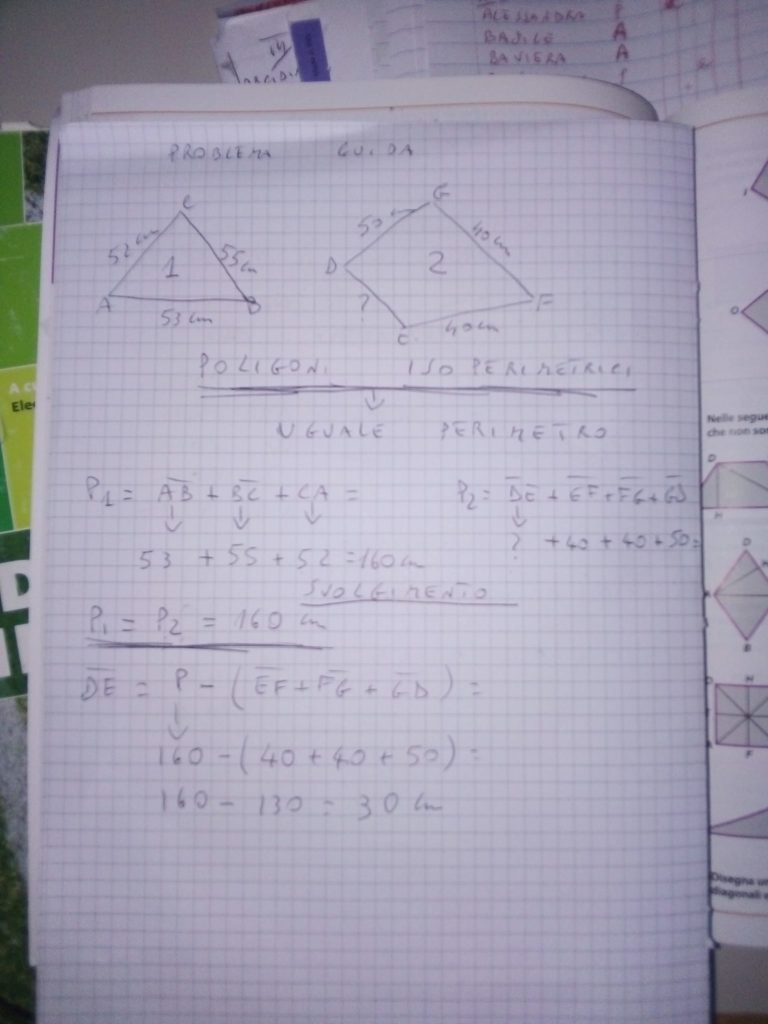 ALESSANDRA P
BASILE A
BAVIERA A
PROBLEMA GUIDA
C
52 cm
55 cm
1
A
B
53 cm
G
50
40 cm
D
2
?
F
E
40 cm
POLIGONI ISOPERIMETRICI
UGUALE PERIMETRO
P1 = AB + BC + CA =
53 + 55 + 52 = 160 cm
P2 = DE + EF + FG + GD
? + 40 + 40 + 50 =
SVOLGIMENTO
P1 = P2 = 160 cm
DE = P - (EF + FG + GD) =
160 - (40 + 40 + 50) =
160 - 130 = 30 cm
A cu
Elec
D
Nelle segue
che non son
D
H
D
B
N
F
Disegna un
diagonali